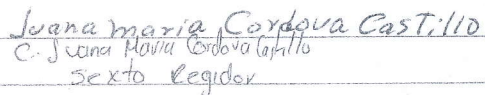 Juana maria Cordova CasTillo
C. Juana Maria Cordova Castillo
Sexto Regidor